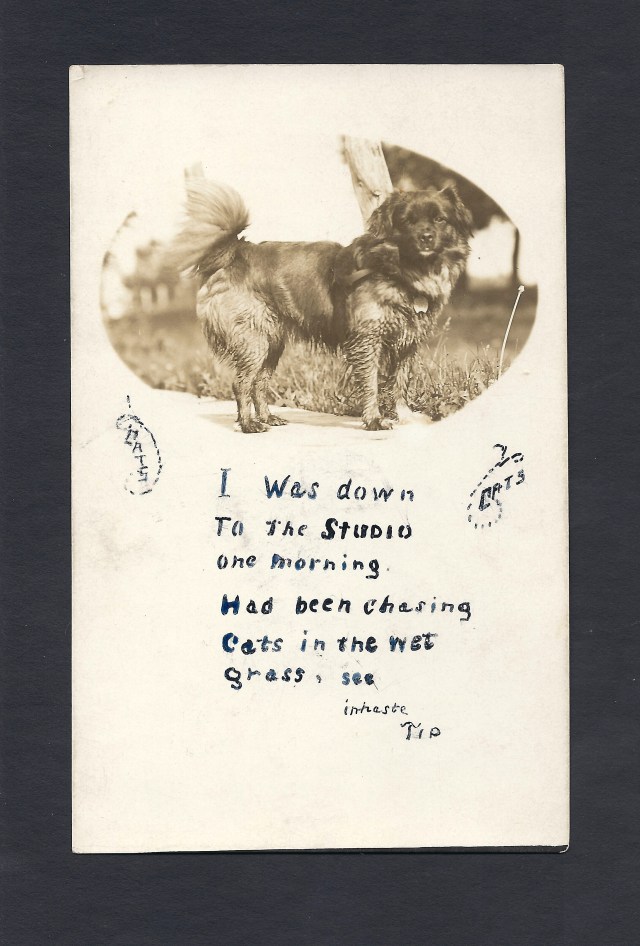 RATS
CATS
I Was down
To The STUDIO
one morning.
Had been chasing
Cats in the wet
grass, see
inhaste
Tip